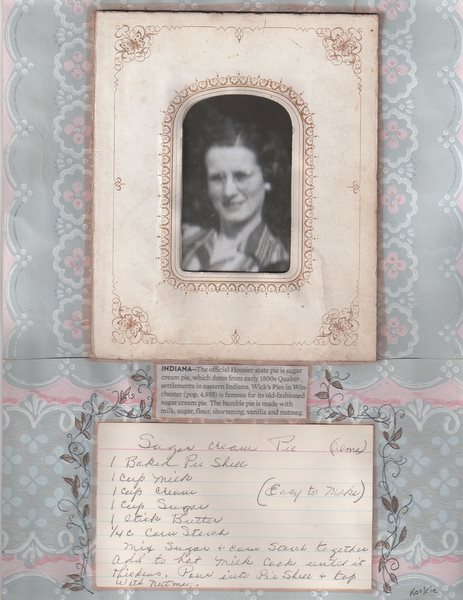 INDIANA—The official Hoosier state pie is sugar
cream pie, which dates from early 1800s Quaker
settlements in eastern Indiana. Wick's Pies in Win-
chester (pop. 4,935) is famous for its old-fashioned
sugar cream pie. The humble pie is made with
milk, sugar, flour, shortening, vanilla and nutmeg.
Sugar Cream Pie
1 Baked Pie Shell
1 Cup Milk
1 Cup Cream (Easy to Make)
1 Cup Sugar
1 Stick Butter
1/4 c Corn Starch
Mix Sugar & Corn Starch together
Add to hot Milk Cook until it
thickens. Pour into Pie Shell & top
with Nutmeg.